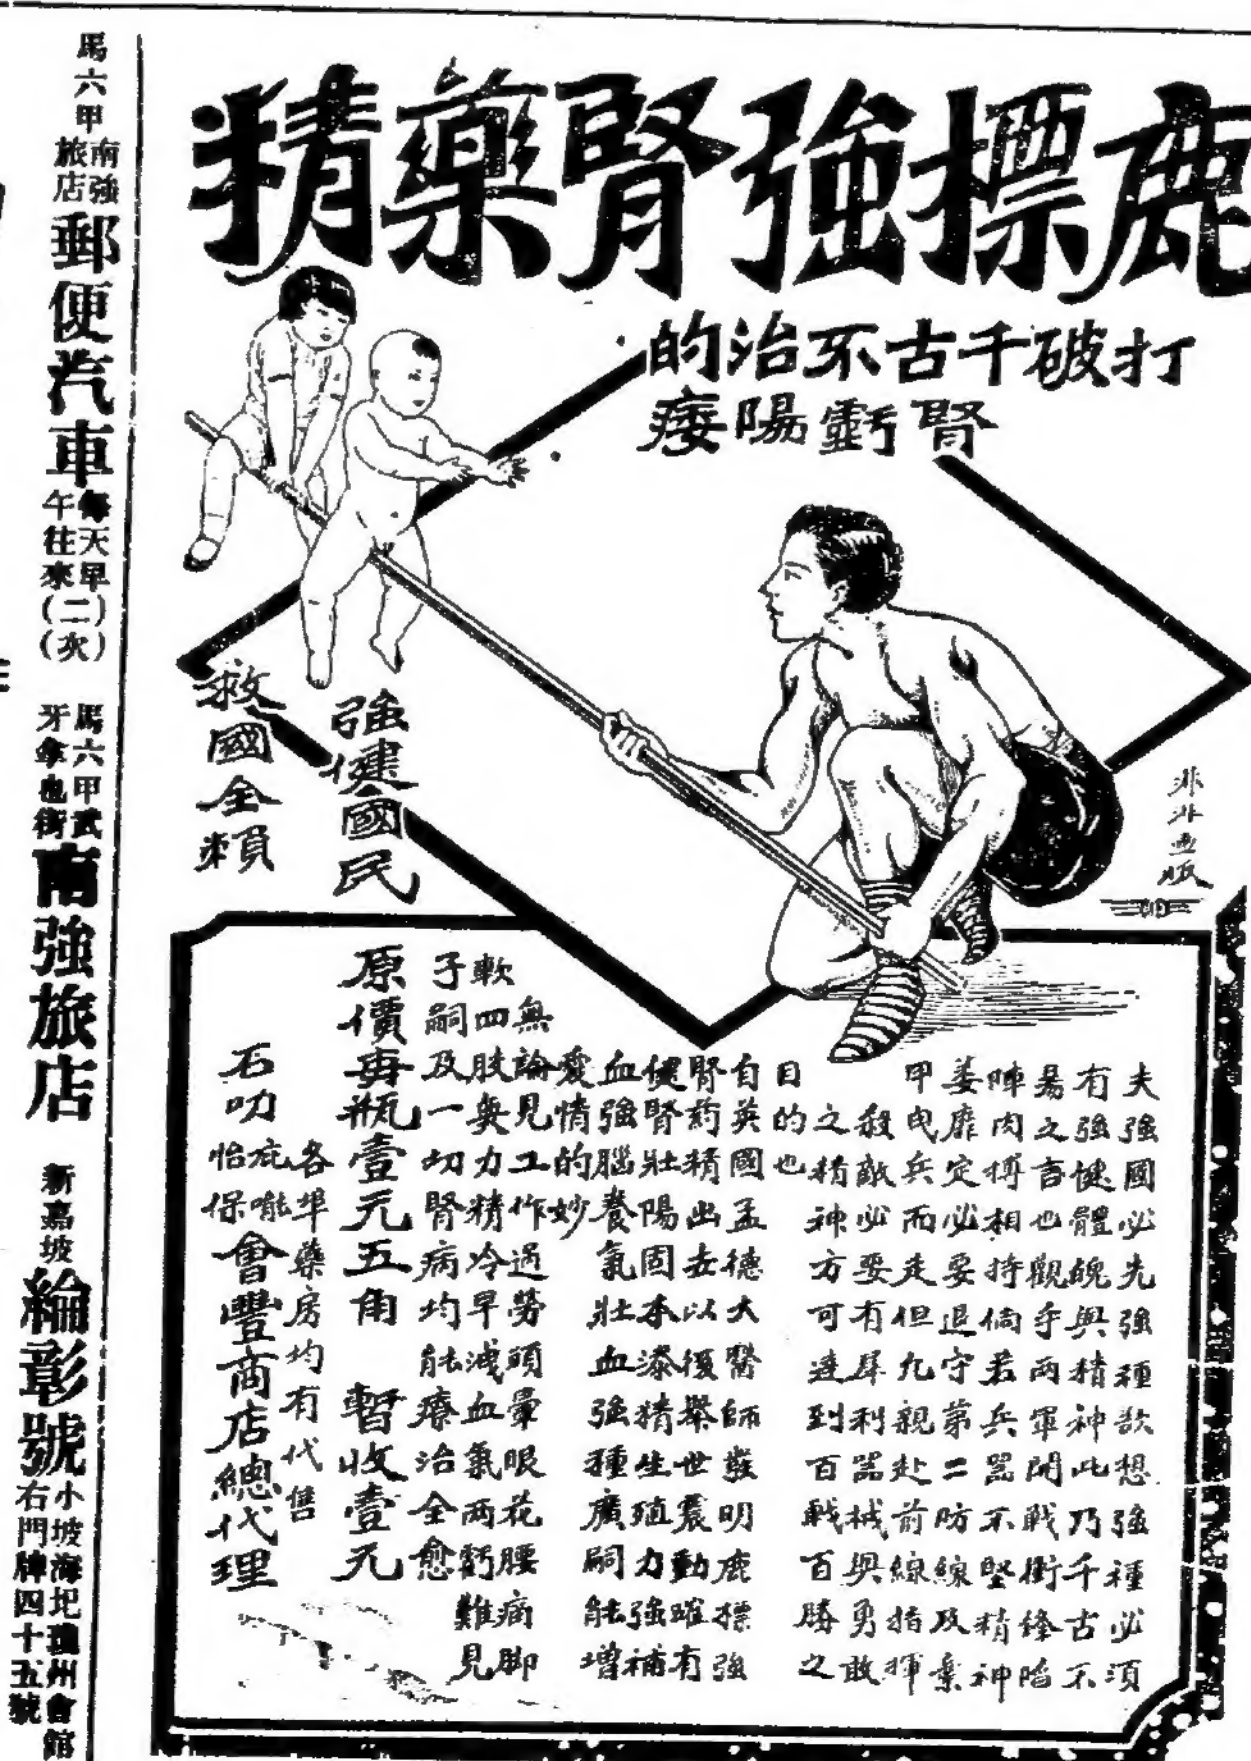 鹿標強腎藥精
打破千古不治的
腎虧陽痿
強健國民
救國全賴
非非画版
夫強國必先強種欲想強種必須
有強健體魄與精神此乃千古不
易之言也觀乎两軍開戰衝鋒陷
陣肉搏相持倘若兵器不堅精神
萎靡定必要退守第二防線及棄
甲曳兵而走但凢親赴前線指揮
殺敵必要有犀利器械與勇敢
之精神方可達到百戰百勝之
目的也
自英國孟德大醫師發明鹿標強
腎葯精出去以後舉世震動確有
健腎壯陽固本添精生殖力強補
血強腦養氣壯血強種廣嗣能增
愛情的妙
無論見工作過勞頭暈眼花腰痛脚
軟四肢無力精冷早洩血氣两虧難見
子嗣及一切腎病均能療治全愈
原價每瓶壹元五角　暫收壹元
各埠藥房均有代售
石叻
庇能
怡保
會豐商店總代理
馬六甲
南強
旅店
郵便汽車
每天早
午往來
(二)
(次)
馬六甲武
牙拿也街
南強旅店
新嘉坡
綸彰號
小坡海圯瓊州會館
右門牌四十五號